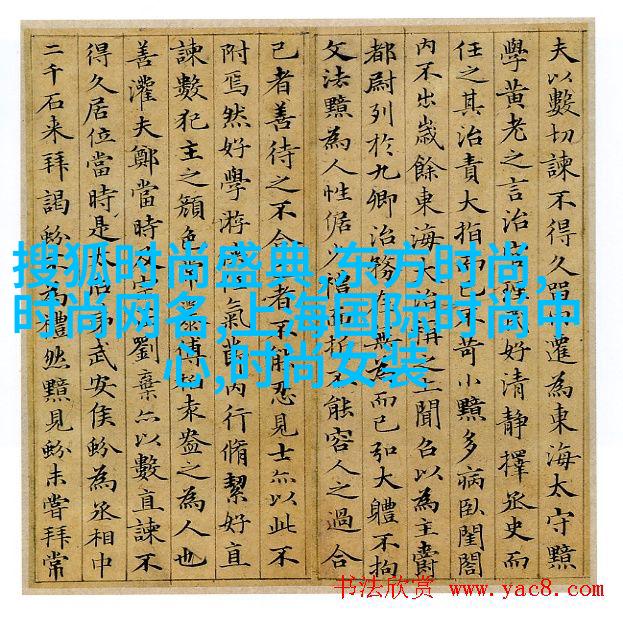 夫以數切諫不得久留內遷為東海太守黯
學黃老之言治官理民好清靜擇丞史而
任之其治責大指而已不苛小黯多病臥閨閤
內不出歲餘東海大治稱之上聞召以為主爵
都尉列於九卿治務在無為而已弘大體不拘
文法黯為人性倨少禮面折不能容人之過合
己者善待之不合己者不能忍見士亦以此不
附焉然好學游俠氣節內行脩絜好直
諫數犯主之顏色常慕傅柏袁盎之為人也
善灌夫鄭當時及宗正劉棄亦以數直諫不
得久居位當時是太后弟武安侯蚡為丞相中
二千石来拜謁蚡不為禮然黯見蚡未嘗拜常
搜狐时尚盛典,东方时尚,
时尚网名,上海国际时尚中
心,时尚女装
书法欣赏 www.yac8.com